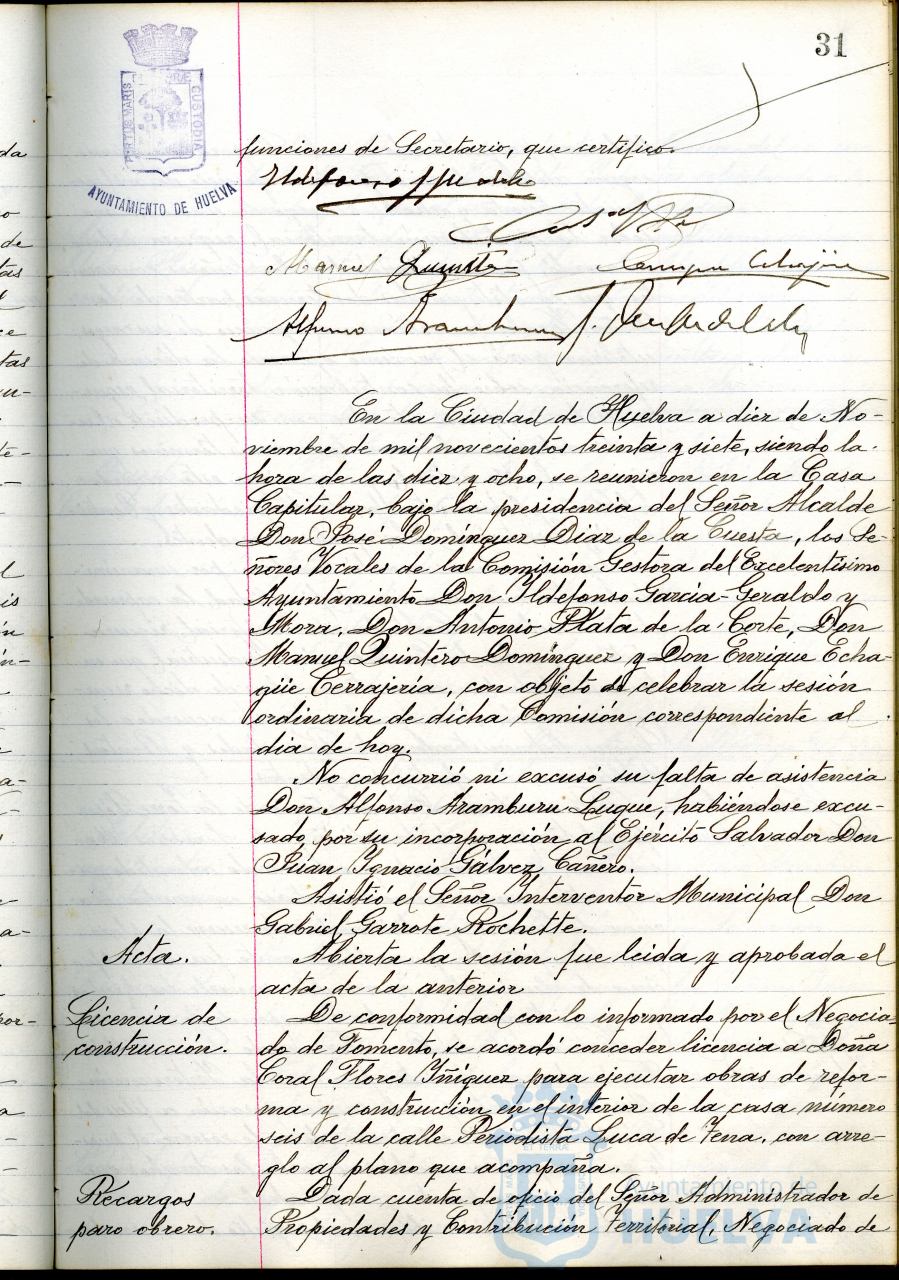 31
PORTUS MARIS
CUSTODIA
AYUNTAMIENTO DE HUELVA
funciones de Secretario, que certifico.
Manuel Quintero
Alfonso Aramburu
En la Ciudad de Huelva a diez de No-
viembre de mil novecientos treinta y siete, siendo la
hora de las diez y ocho, se reunieron en la Casa
Capitular, bajo la presidencia del Señor Alcalde
Don José Domínguez Diaz de la Cuesta, los Se-
ñores Vocales de la Comisión Gestora del Excelentísimo
Ayuntamiento Don Ildefonso García-Geraldo y
Mora, Don Antonio Plata de la Corte, Don
Manuel Quintero Domínguez y Don Enrique Echa
güe Cerrajería, con objeto de celebrar la sesión
ordinaria de dicha Comisión correspondiente al
dia de hoy.
No concurrió ni excusó su falta de asistencia
Don Alfonso Aramburu Luque, habiéndose excu-
sado, por su incorporación al Ejército Salvador Don
Juan Ignacio Gálvez Cañero.
Asistió el Señor Interventor Municipal Don
Gabriel Garrote Rochette.
Acta.
Abierta la sesión fue leida y aprobada el
acta de la anterior
Licencia de
construcción.
De conformidad con lo informado por el Negocia-
do de Fomento, se acordó conceder licencia a Doña
Coral Flores Yñíguez para ejecutar obras de refor-
ma y construcción en el interior de la casa número
seis de la calle Periodista Luca de Tena, con arre-
glo al plano que acompaña.
Recargos
paro obrero.
Dada cuenta de oficio del Señor Administrador de
Propiedades y Contribución Territorial, Negociado de
Ayuntamiento de
HUELVA